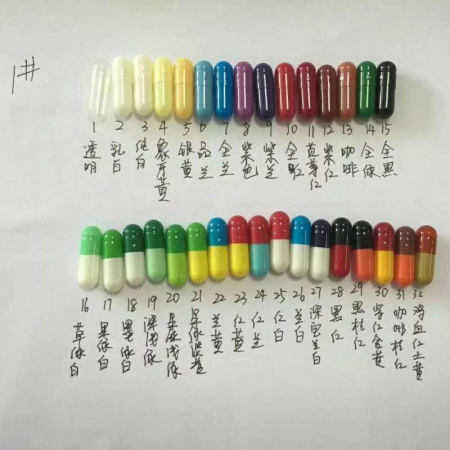 1#
1 透明
2 乳白
3 纯白
4 象牙黄
5 银黄
6 品兰
7 全兰
8 紫色
9 紫兰
10 全红
11
12 紫红
13 咖啡
14 全绿
15 全黑
16 草绿白
17 果绿白
18 墨绿白
19 深浅绿
20 果绿浅绿
21
22 兰黄
23 红黄
24 红兰
25 红白
26 兰白
27
28 黑红
29 黑桔红
30 紫红金黄
31 咖啡桔红
32 鸡血红土黄